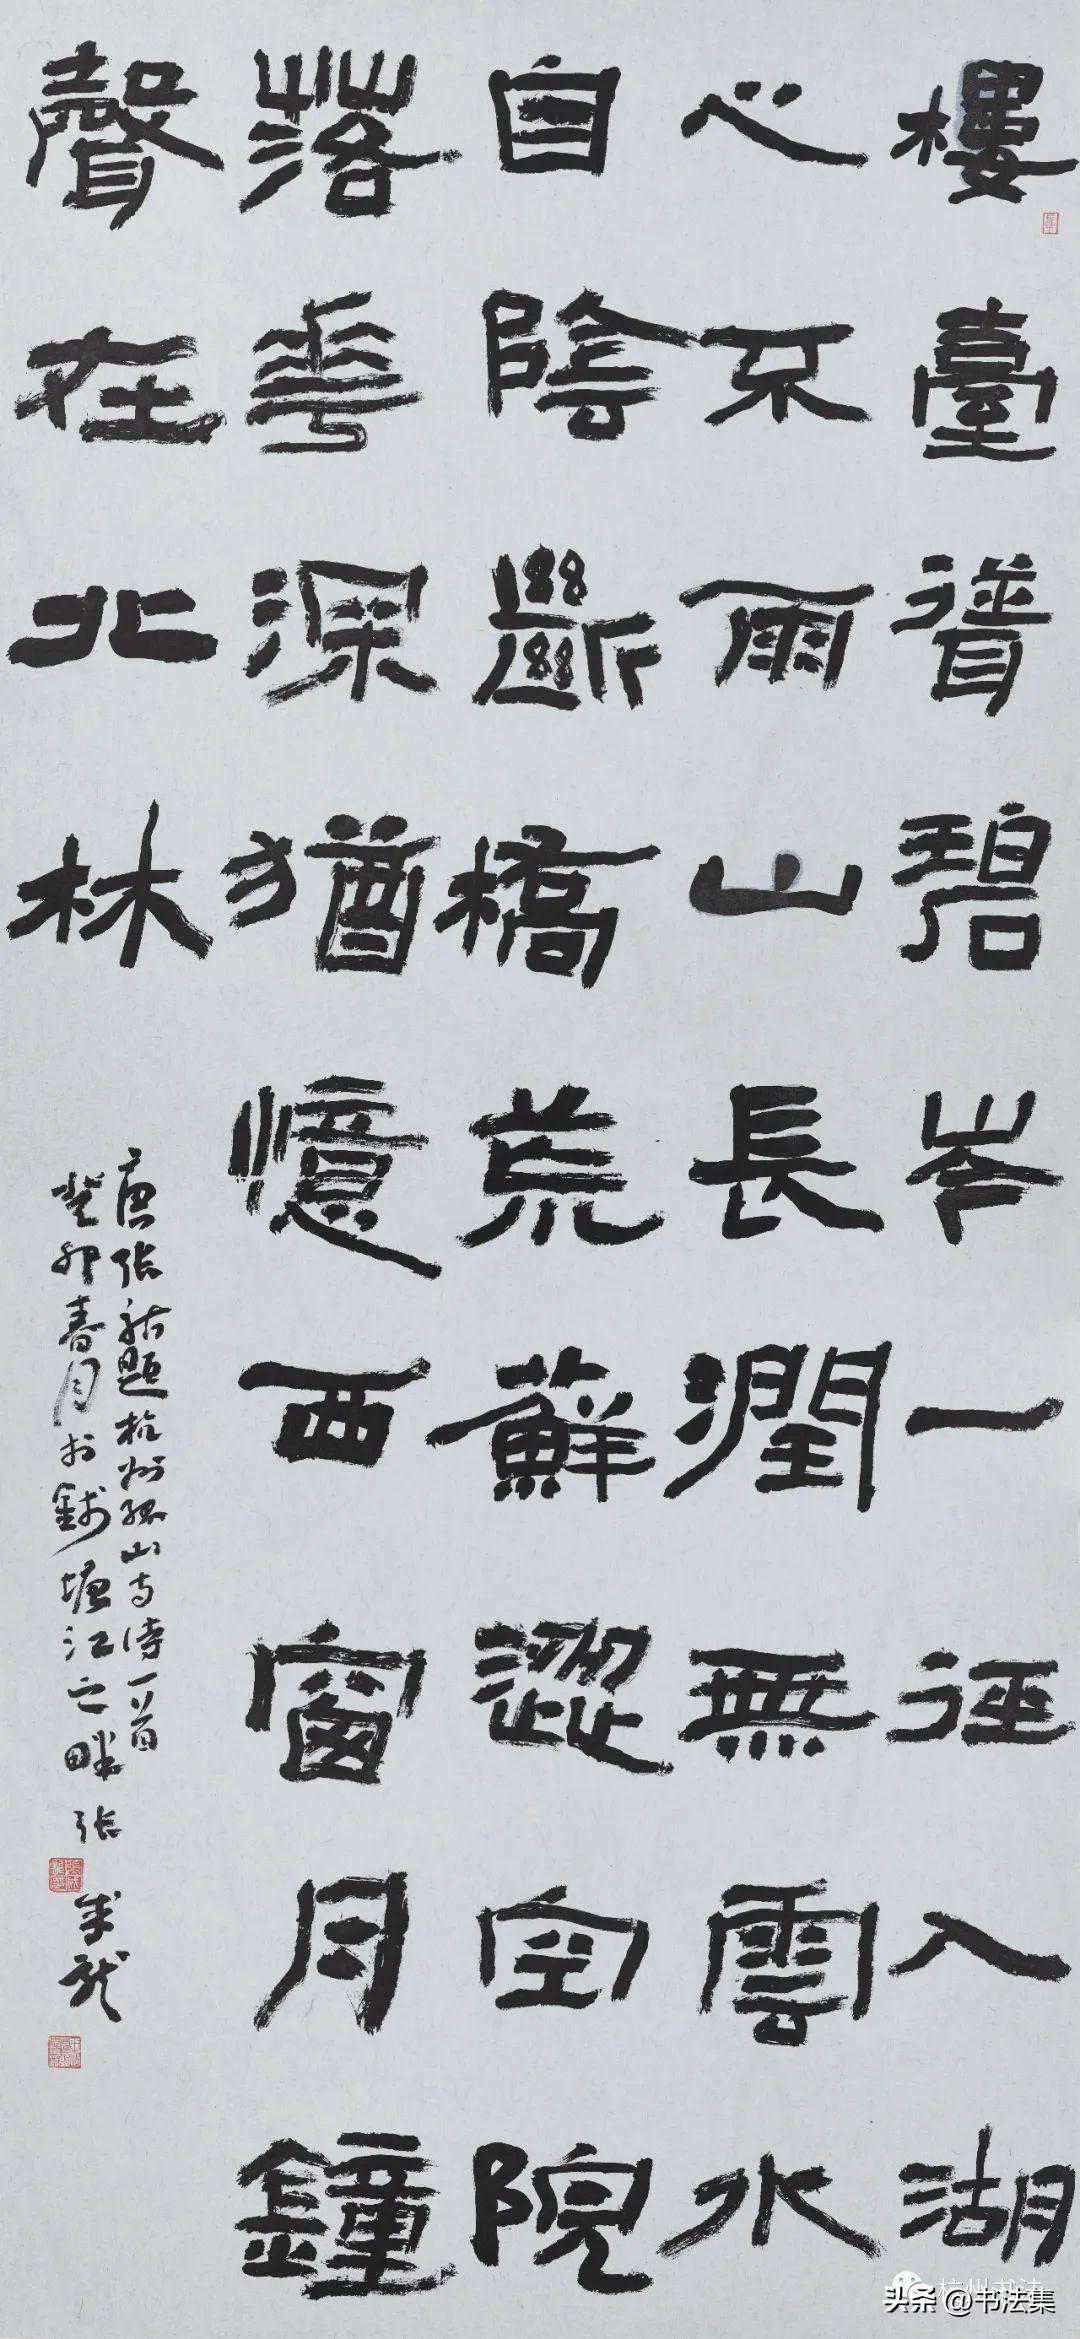 樓臺聳碧岑一徑入湖
心不雨山長潤無雲水
自陰斷橋荒蘚澀空院
落花深猶憶西窗月鐘
聲在北林
唐張祜題杭州孤山寺詩一首
癸卯春月於錢塘江之畔張龍
杭州书法
头条 @书法集